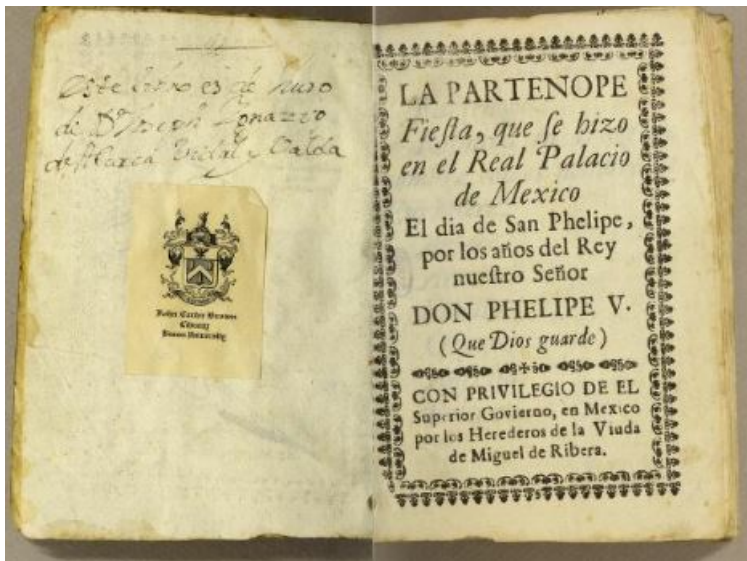 este libro es de
de Dn Joseph Ygnazio
de Abarca Vidal y Valda
John Carter Brown
Library
Brown University
LA PARTENOPE
Fieſta, que ſe hizo
en el Real Palacio
de Mexico
El dia de San Phelipe,
por los años del Rey
nueſtro Señor
DON PHELIPE V.
(Que Dios guarde)
CON PRIVILEGIO DE EL
Superior Govierno, en Mexico
por los Herederos de la Viuda
de Miguel de Ribera.